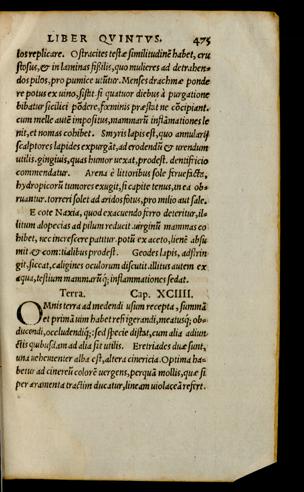 LIBER QVINTVS. 475
los replicare. Ostracites testæ similitudinē habet, cru
stosus, & in laminas fissilis, quo mulieres ad detrahen-
dos pilos, pro pumice utūtur. Menses drachmæ ponde
re potus ex uino, sistit. si quatuor diebus à purgatione
bibatur sicilici pōdere, fœminis præstat ne cōcipiant.
cum melle autē impositus, mammarū inflāmationes le
nit, et nomas cohibet. Smyris lapis est, quo annularij
scalptores lapides expurgāt, ad erodendū & urendum
utilis. gingiuis, quas humor uexat, prodest. dentifricio
commendatur. Arena è littoribus sole feruefacta,
hydropicorū tumores exugit, si capite tenus, in ea ob
ruantur. torreri solet ad aridos fotus, pro milio aut sale.
E cote Naxia, quod exacuendo ferro deteritur, il-
litum alopecias ad pilum reducit. uirginū mammas co
hibet, nec increscere patitur. potū ex aceto, lienē absu
mit & comitialibus prodest. Geodes lapis, adstrin
git, siccat, caligines oculorum discutit. illitus autem ex
aqua, testium mammarūq; inflammationes sedat.
Terra. Cap. XCIIII.
OMnis terra ad medendi usum recepta, summā
et primā uim habet refrigerandi, meatusq; ob-
ducendi, occludendiq;: sed specie distat, cum alia adiun
ctis quibusdam ad alia sit utilis. Eretriades duæ sunt,
una uehementer alba est, altera cinericia. Optima ha-
betur ad cinereū colorē uergens, perquā mollis, quæ si
per æramenta tractim ducatur, lineam uiolaceā refert.